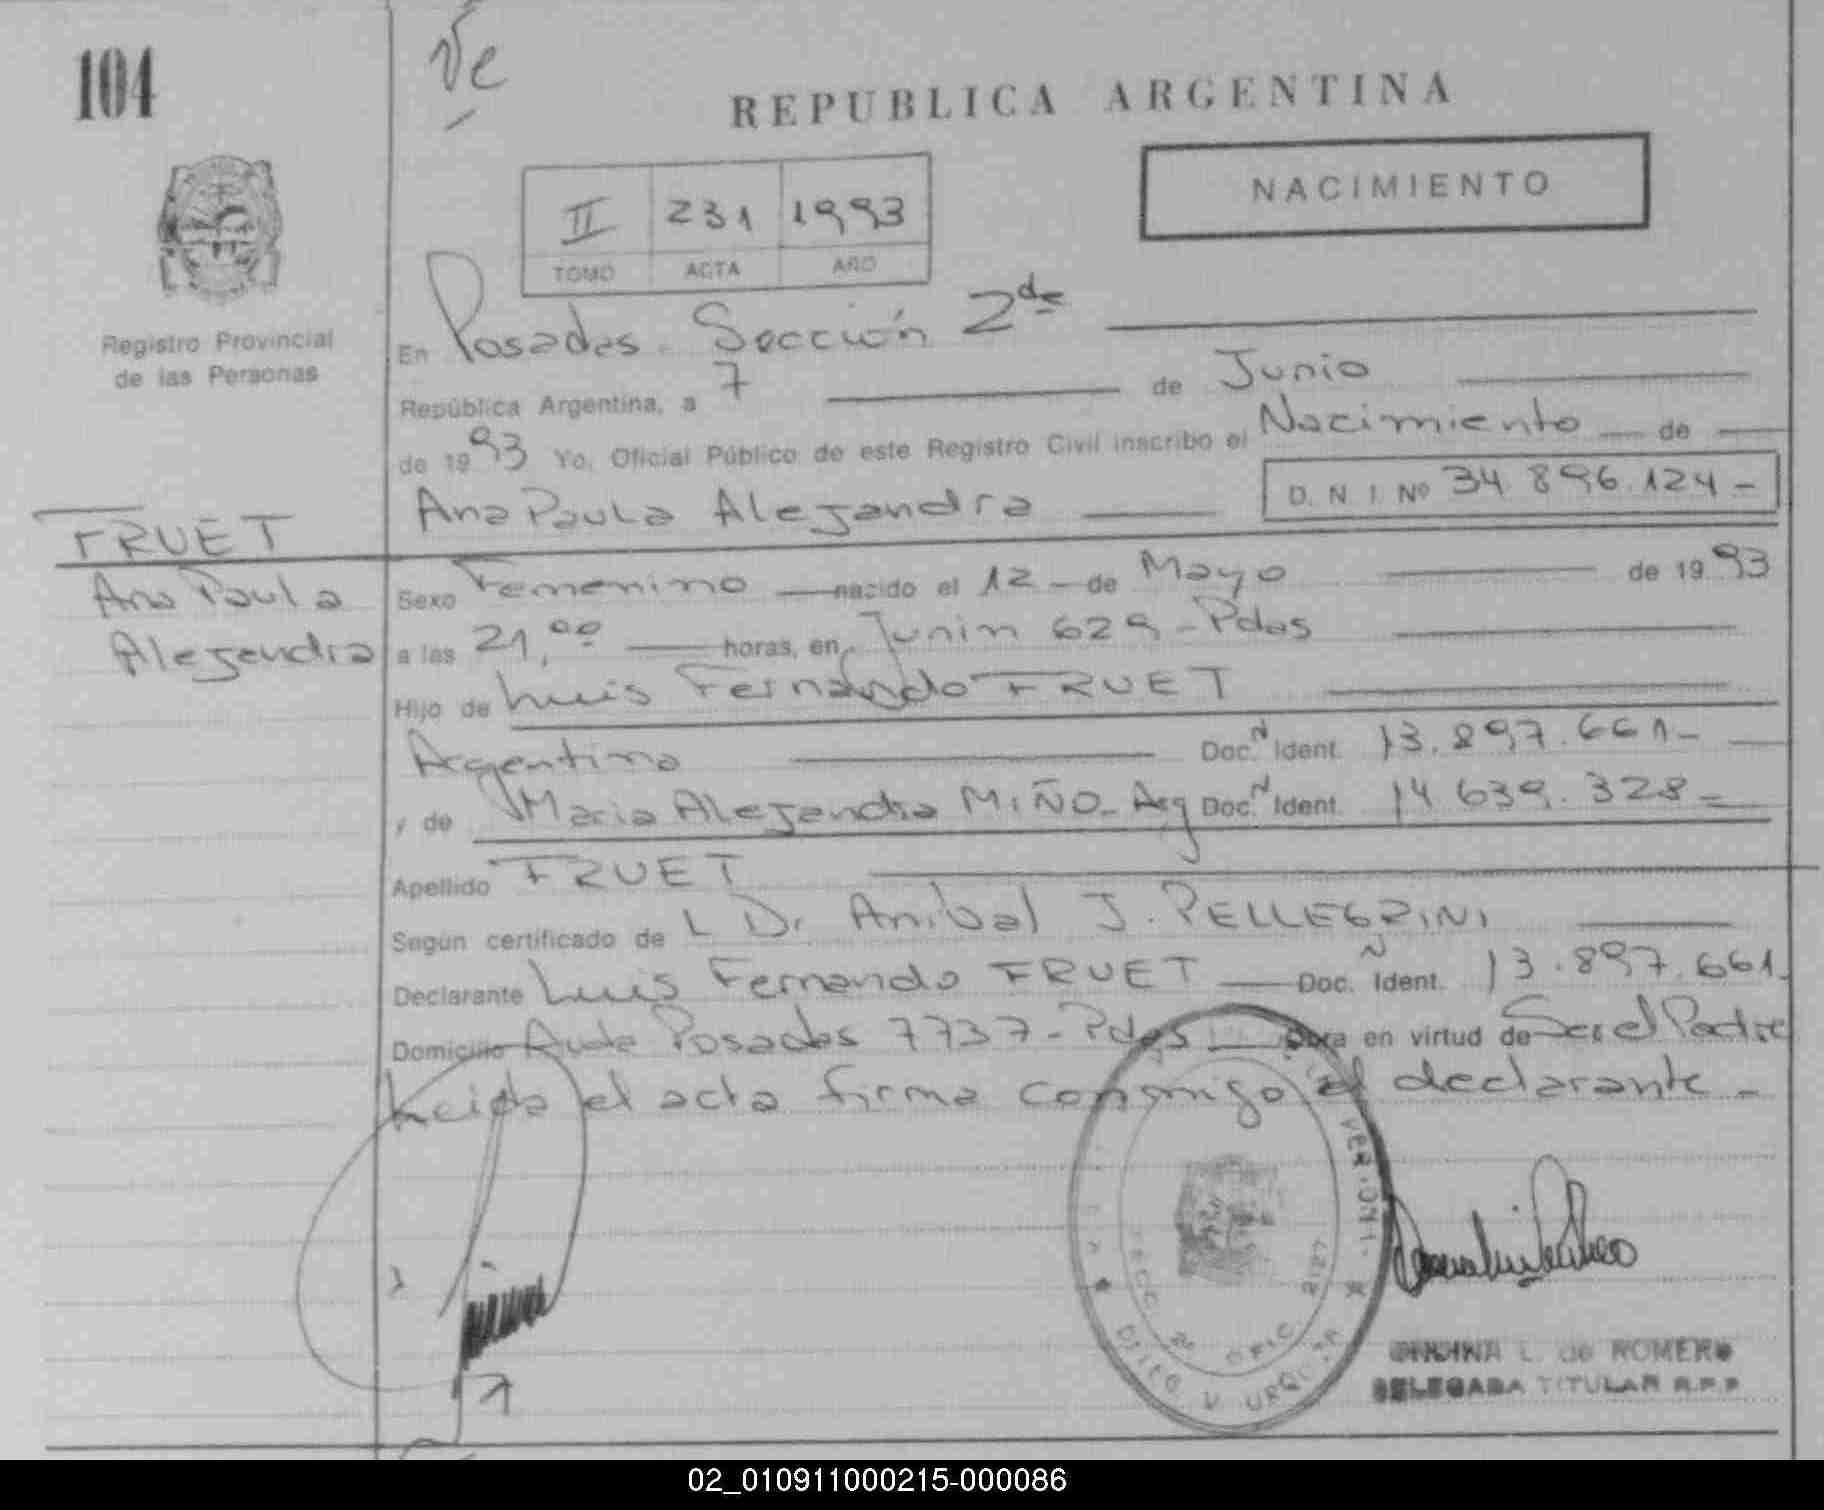 104
Ve
REPUBLICA ARGENTINA
NACIMIENTO
II 231 1993
TOMO ACTA AÑO
Registro Provincial
de las Personas
En Posadas. Sección 2da
República Argentina, a 7 de Junio
de 1993 Yo, Oficial Público de este Registro Civil inscribo el Nacimiento de
Ana Paula Alejandra D. N. I. Nº 34.896.124-
FRUET
Ana Paula
Alejandra
Sexo Femenino nacido el 12 - de Mayo de 1993
a las 21,00 horas, en Junin 629 - Pdas
Hijo de Luis Fernando FRUET
Argentino Doc. N Ident. 13.897.661-
y de Maria Alejandra MIÑO - Arg Doc. N Ident. 14.639.328-
Apellido FRUET
Según certificado de L Dr Anibal J. PELLEGRINI
Declarante Luis Fernando FRUET Doc. N Ident. 13.897.661-
Domicilio Avda Posadas 7737 - Pdas Obra en virtud de Ser el Padre
Leida el acta firma conmigo el declarante -
SECC. 2a OFIC.
DELEGADA TITULAR R.P.P
L. de ROMERO
02_010911000215-000086